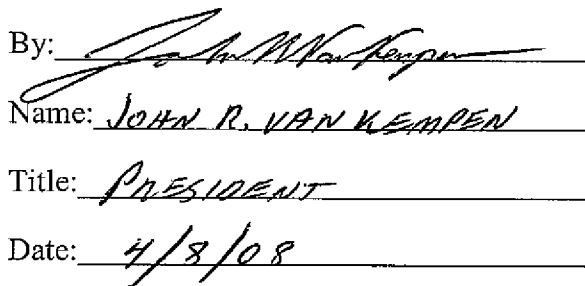 By: John R Van Kempen
Name: JOHN R. VAN KEMPEN
Title: PRESIDENT
Date: 4/8/08